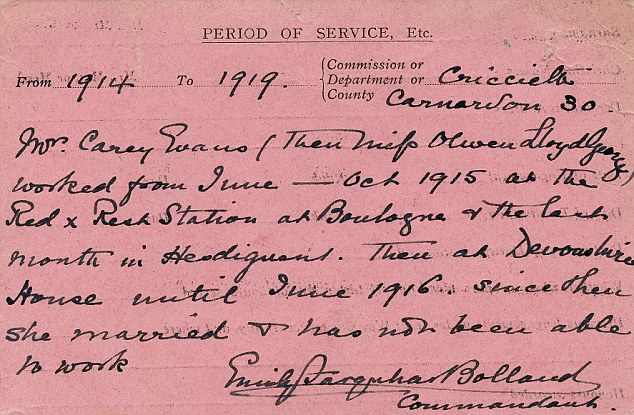 PERIOD OF SERVICE, Etc.
From 1914 To 1919. Commission or Department or County Criccieth
Carnarvon 30
Mrs. Carey Evans (Then Miss Olwen Lloyd George)
worked from June — Oct 1915 at the
Red x Rest Station at Boulogne & the last
month in Hesdigneul. Then at Devonshire
House until June 1916. since then
she married & has not been able
to work
Emily Farquhar Bolland
Commandant.